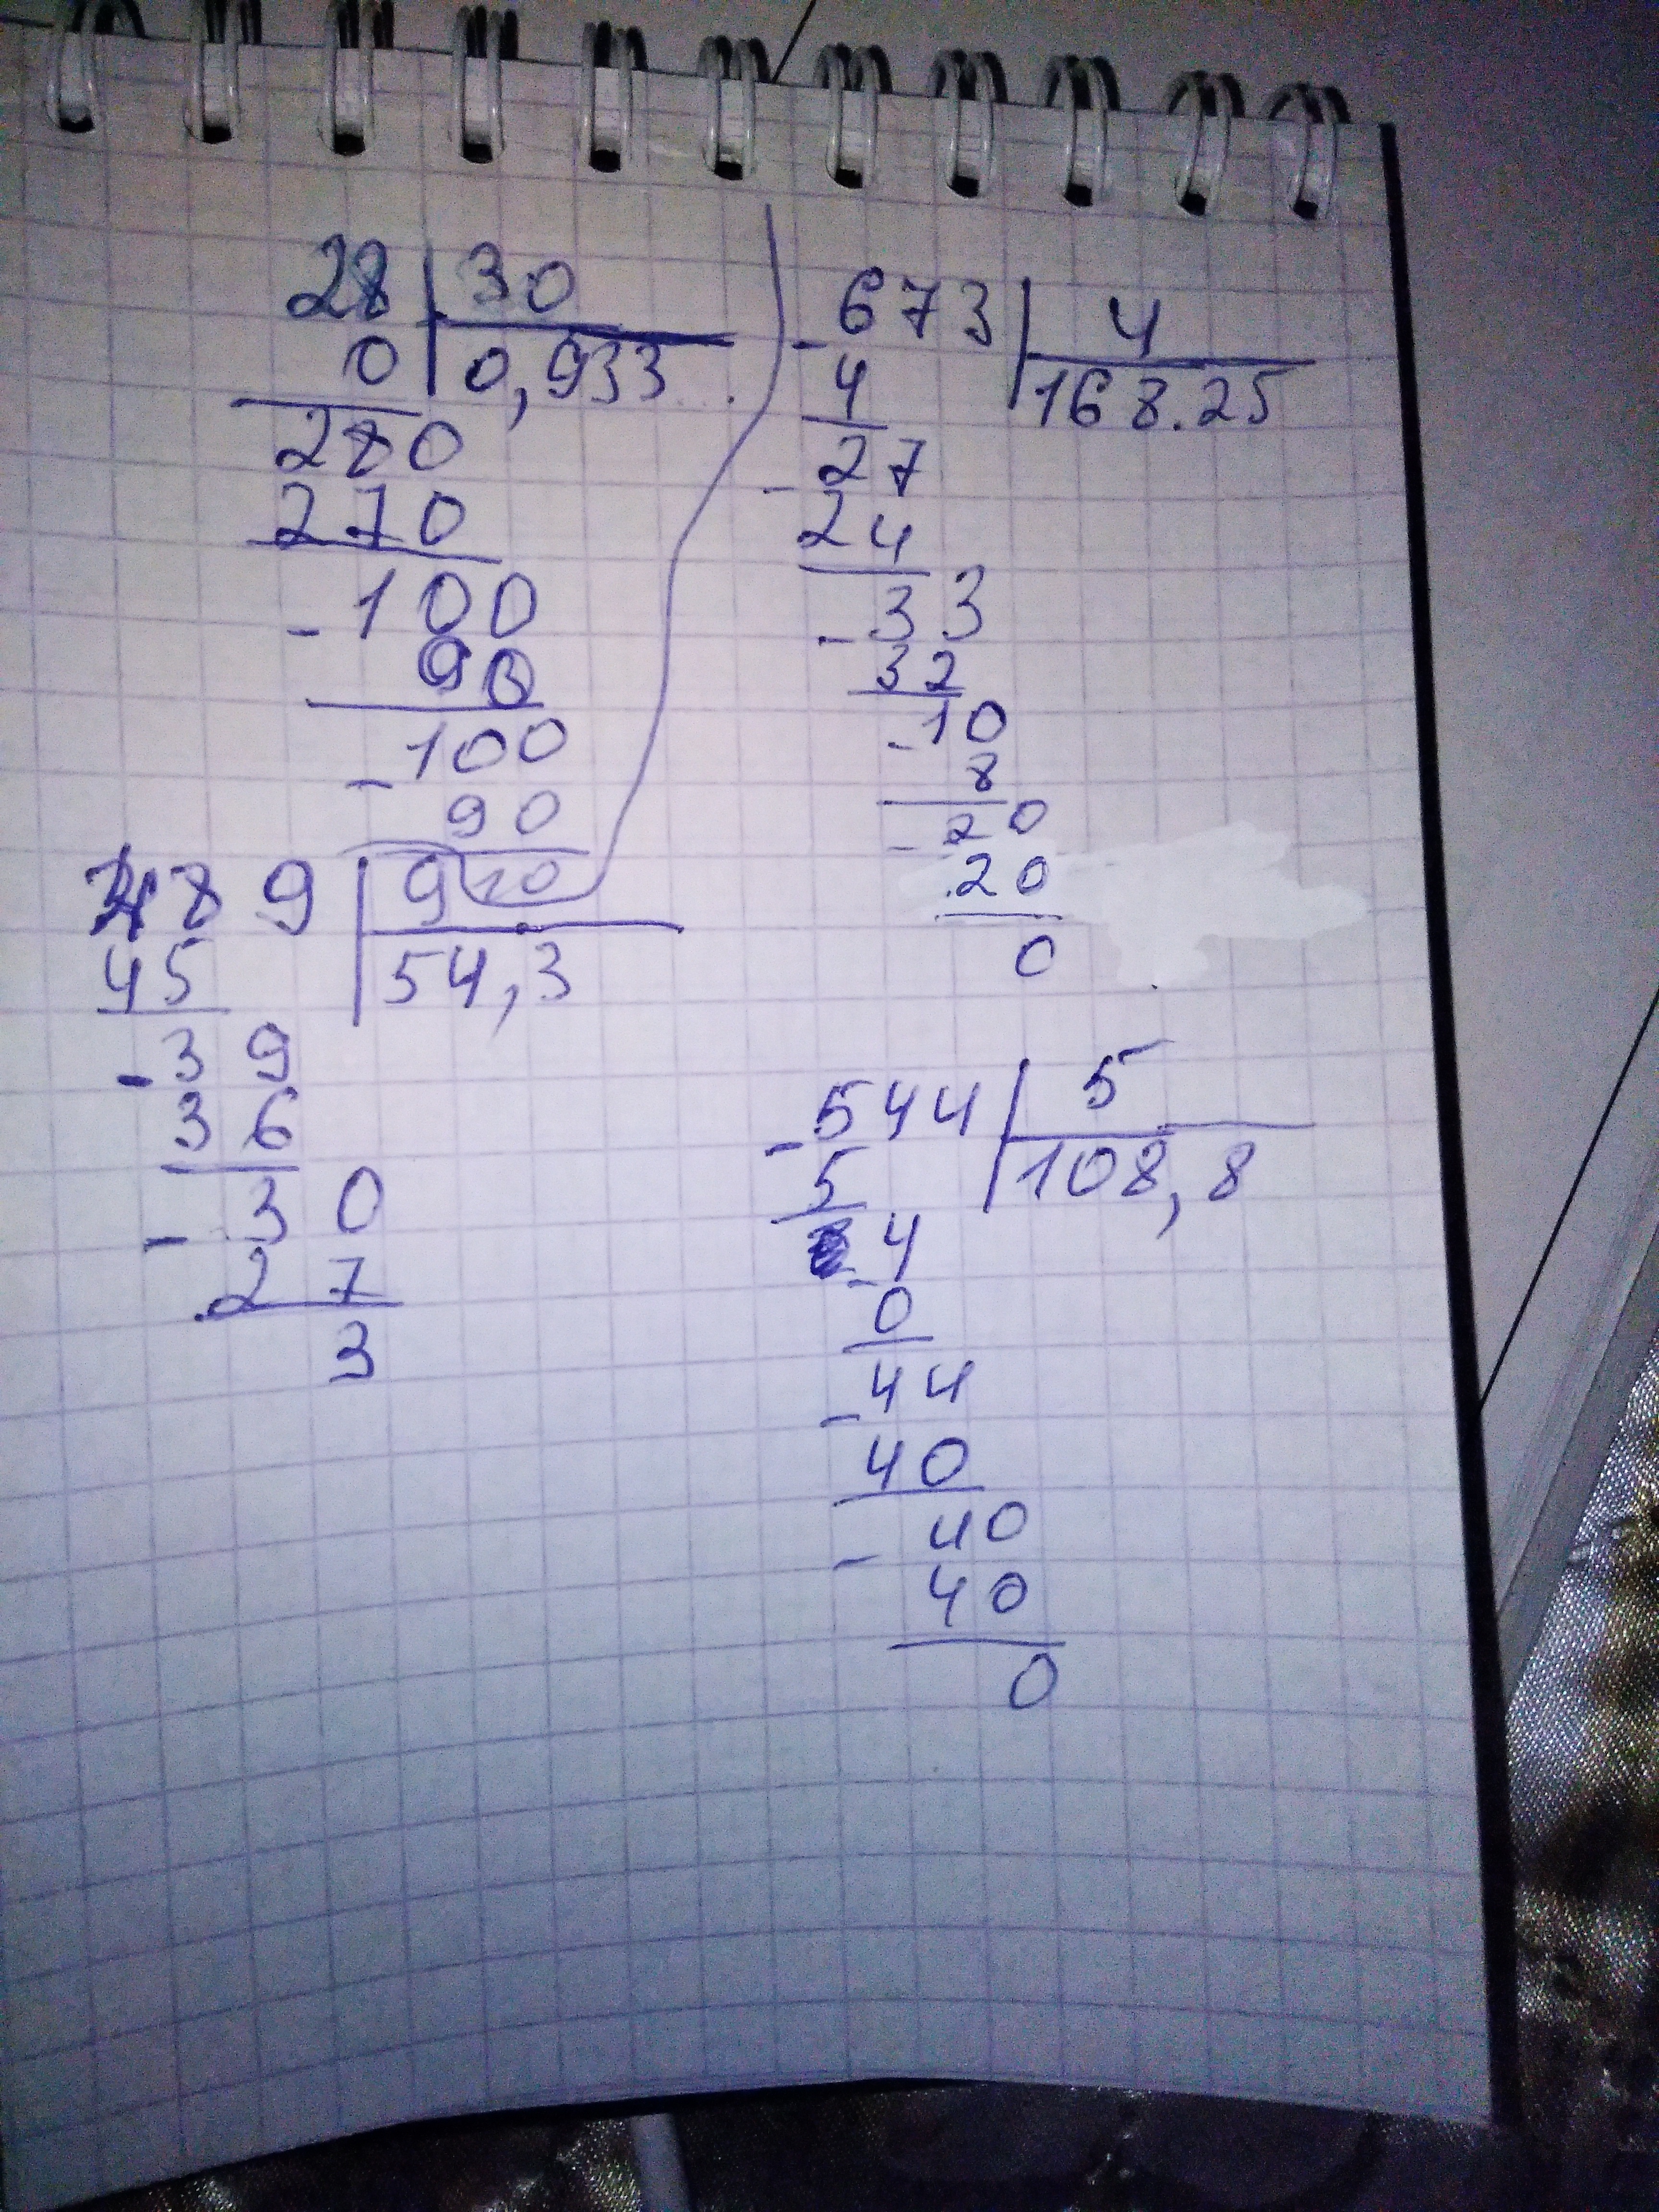 28 30
0 0,933...
280
270
- 100
90
- 100
90
10
- 673 4
4 168.25
- 27
24
- 33
32
- 10
8
- 20
20
0
489 9
45 54,3
- 39
36
- 30
27
3
- 544 5
5 108,8
- 4
0
- 44
40
- 40
40
0